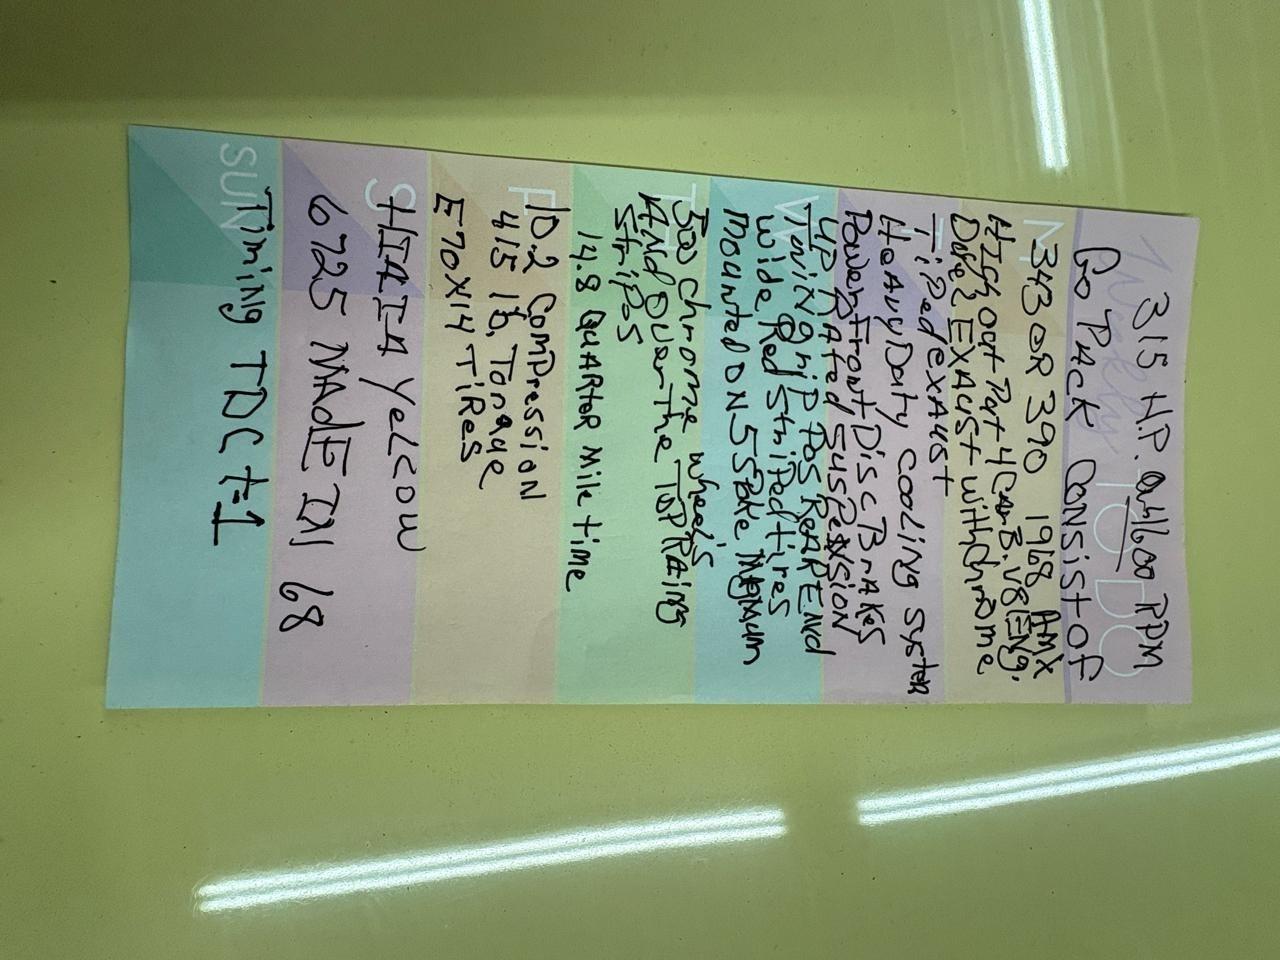 Weekly TO DO
315 H.P. at 4600 RPM
Go PACK CONSIST OF
M
343 OR 390 1968 AMX
HIGH OUT Put 4 CARB. V8 ENG.
Duel EXAUST with Chrome
T
Tiped exaust
HeAvy Duty cooling system
Power Front Disc BrAKes
UP RAted SusPension
W
Twin grip Pos ReAR End
wide Red Striped tires
mounted ON 5 SPoke MAgnum
TH
500 chrome wheels
ANd Over The TOP RAing
StriPes
14.8 QUARter mile time
F
10.2 ComPression
415 lb. Torque
E70x14 TiRes
S
HIAIA Yellow
6725 MAdE IN 68
SUN
Timing TDC t-1